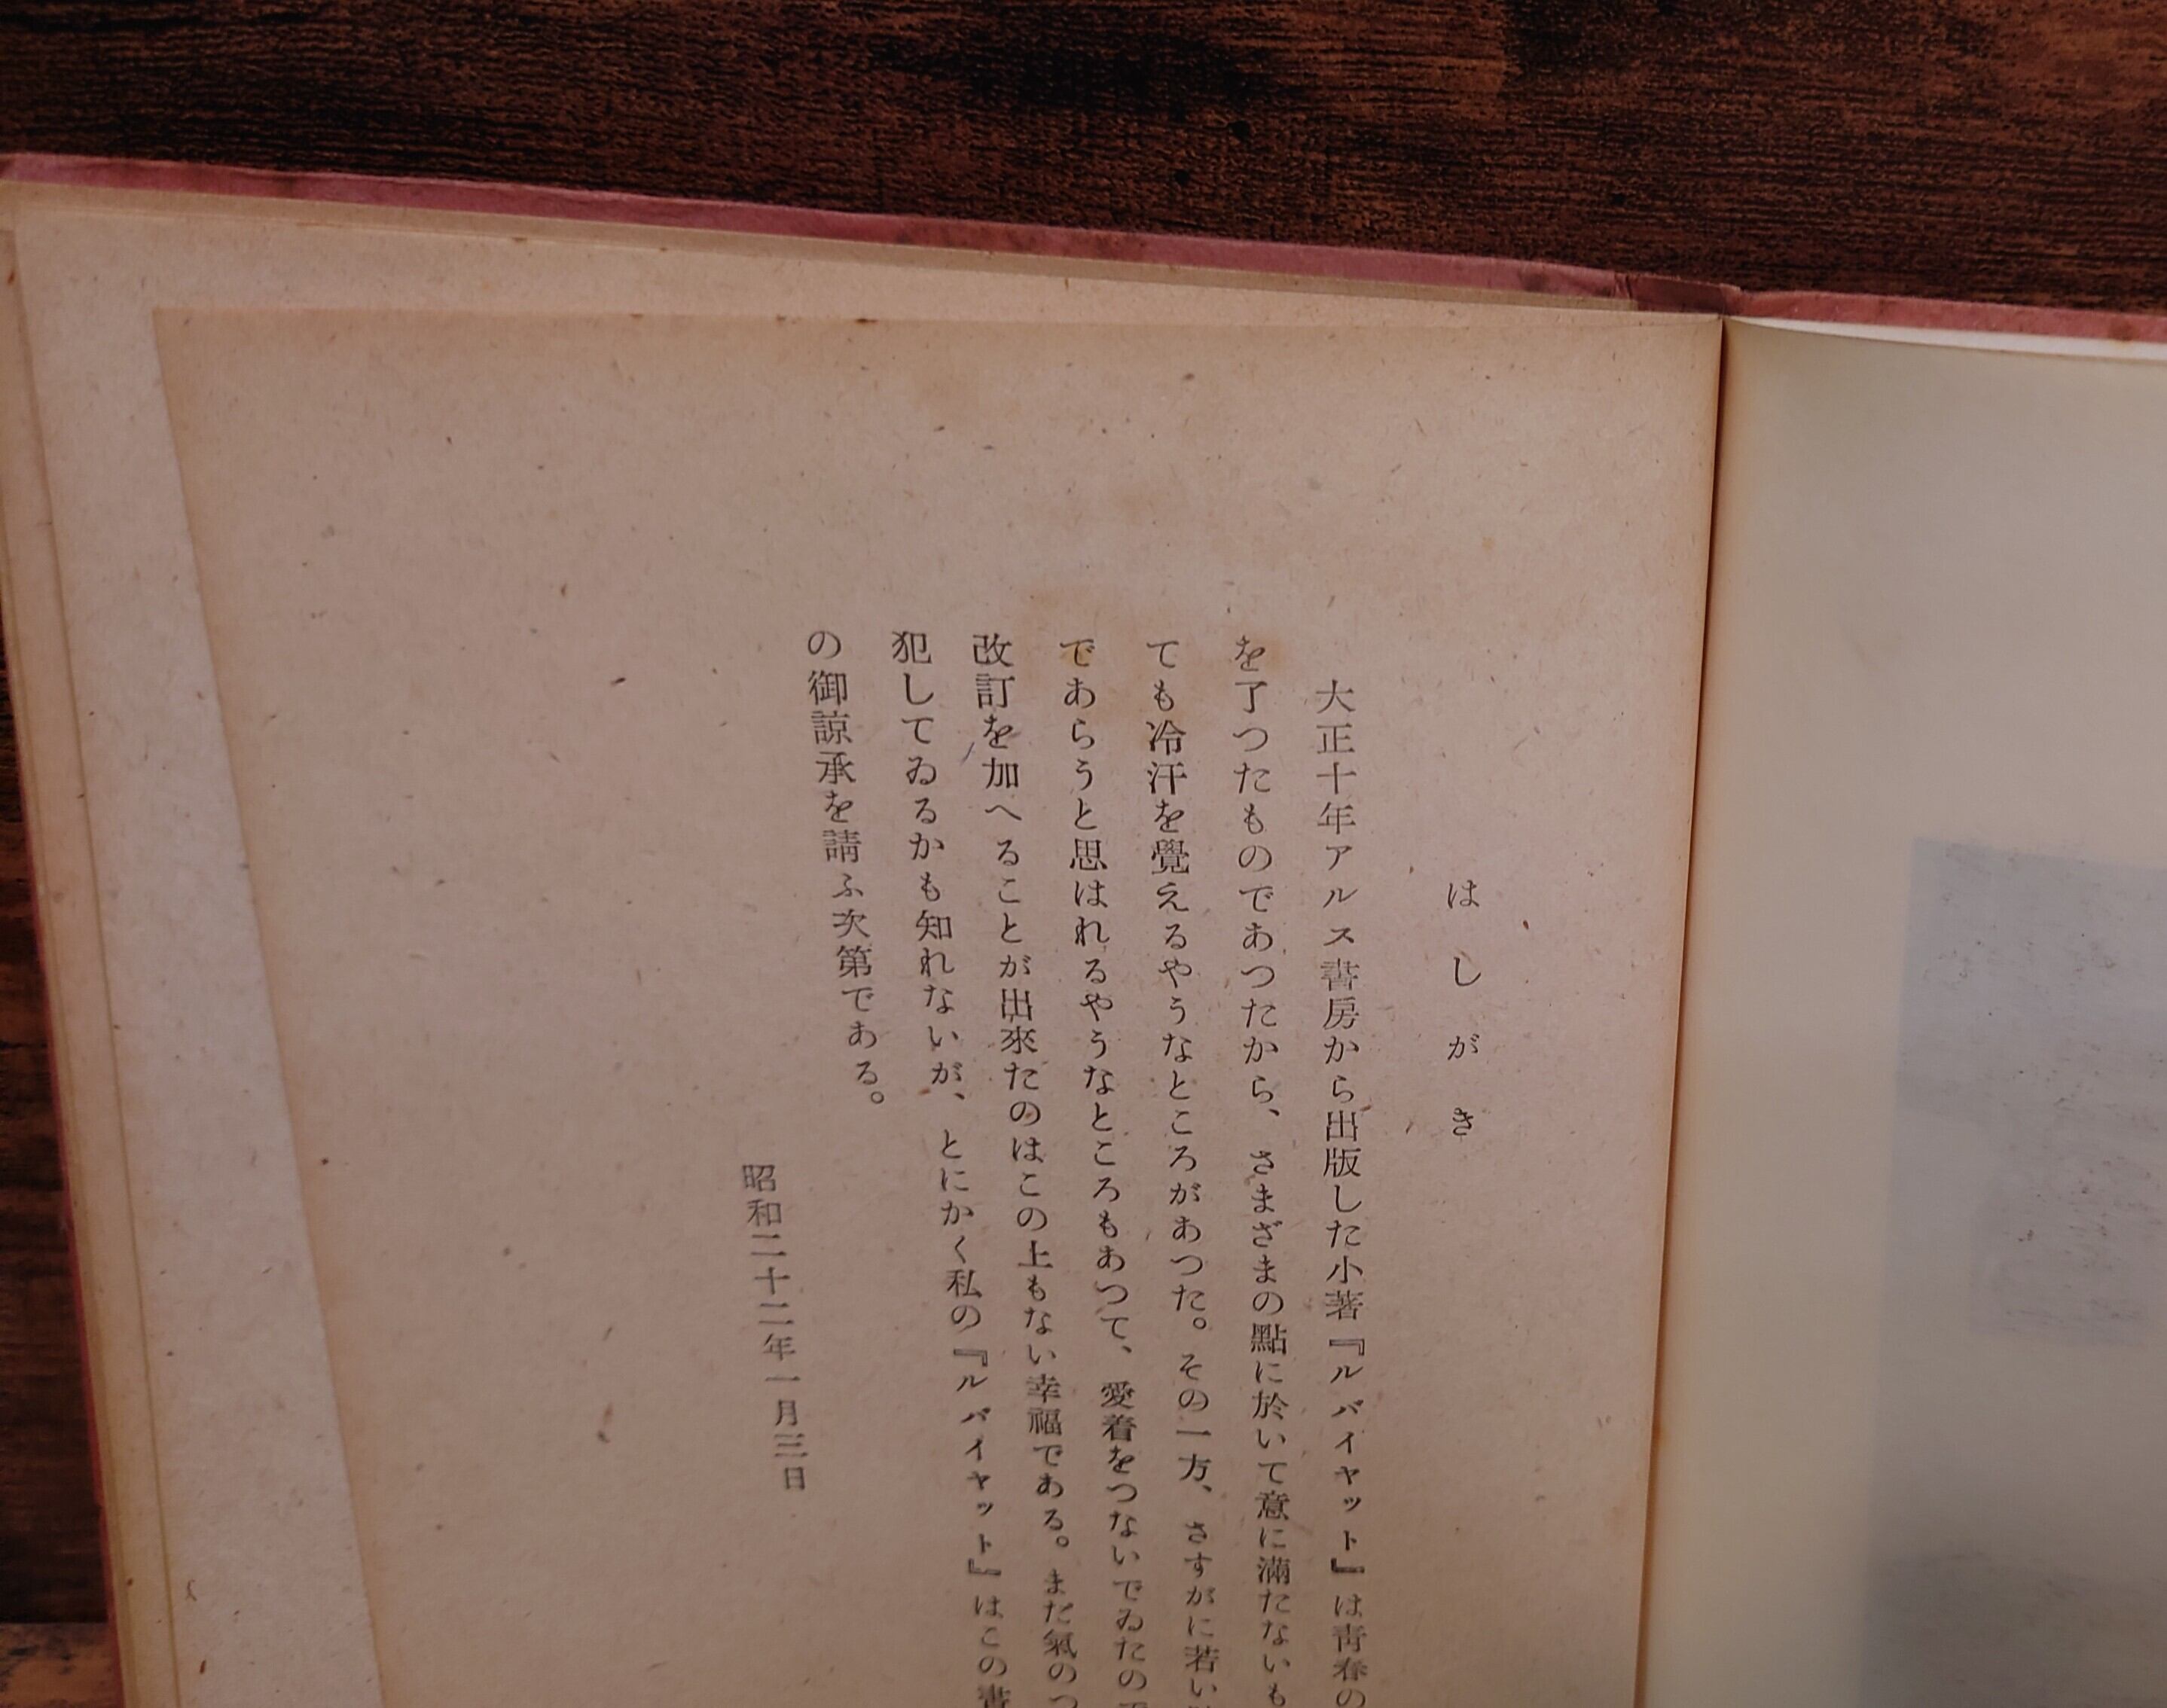 はしがき
大正十年アルス書房から出版した小著『ルバイヤット』は靑春の
を了つたものであつたから、さまざまの點に於いて意に滿たないも
ても冷汗を覺えるやうなところがあつた。その一方、さすがに若い
であらうと思はれるやうなところもあつて、愛着をつないでゐたの
改訂を加へることが出來たのはこの上もない幸福である。まだ氣のつ
犯してゐるかも知れないが、とにかく私の『ルバイヤット』はこの書
の御諒承を請ふ次第である。
昭和二十二年一月三日